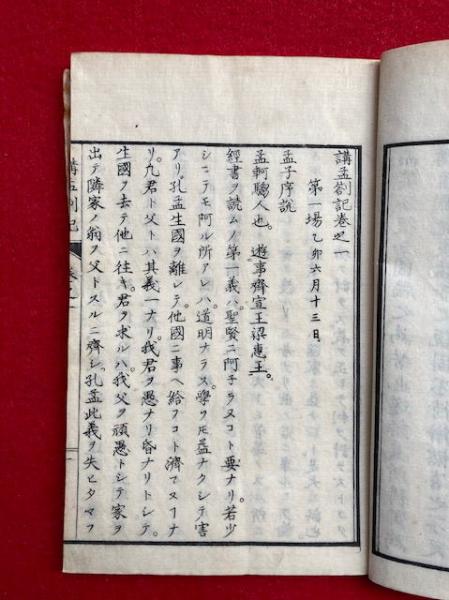 講孟劄記巻之一
第一場 乙卯六月十三日
孟子序説
孟軻騶人也。遊事齊宣王梁惠王。
經書ヲ読ムノ第一義ハ、聖賢ニ阿子ラヌコト要ナリ。若少
シニテモ阿ル所アレハ、道明ナラス、學フ𪜈益ナクシテ害
アリ。孔孟生國ヲ離レテ、他國ニ事ヘ給フコト濟マヌコナ
リ。凡君ト父トハ其義一ナリ。我君ヲ愚ナリ昏ナリトシテ、
生國ヲ去テ他ニ往キ、君ヲ求ルハ、我父ヲ頑愚トシテ家ヲ
出テ隣家ノ翁ヲ父トスルニ齊シ。孔孟此義ヲ失ヒタマフ
講孟劄記
巻之一